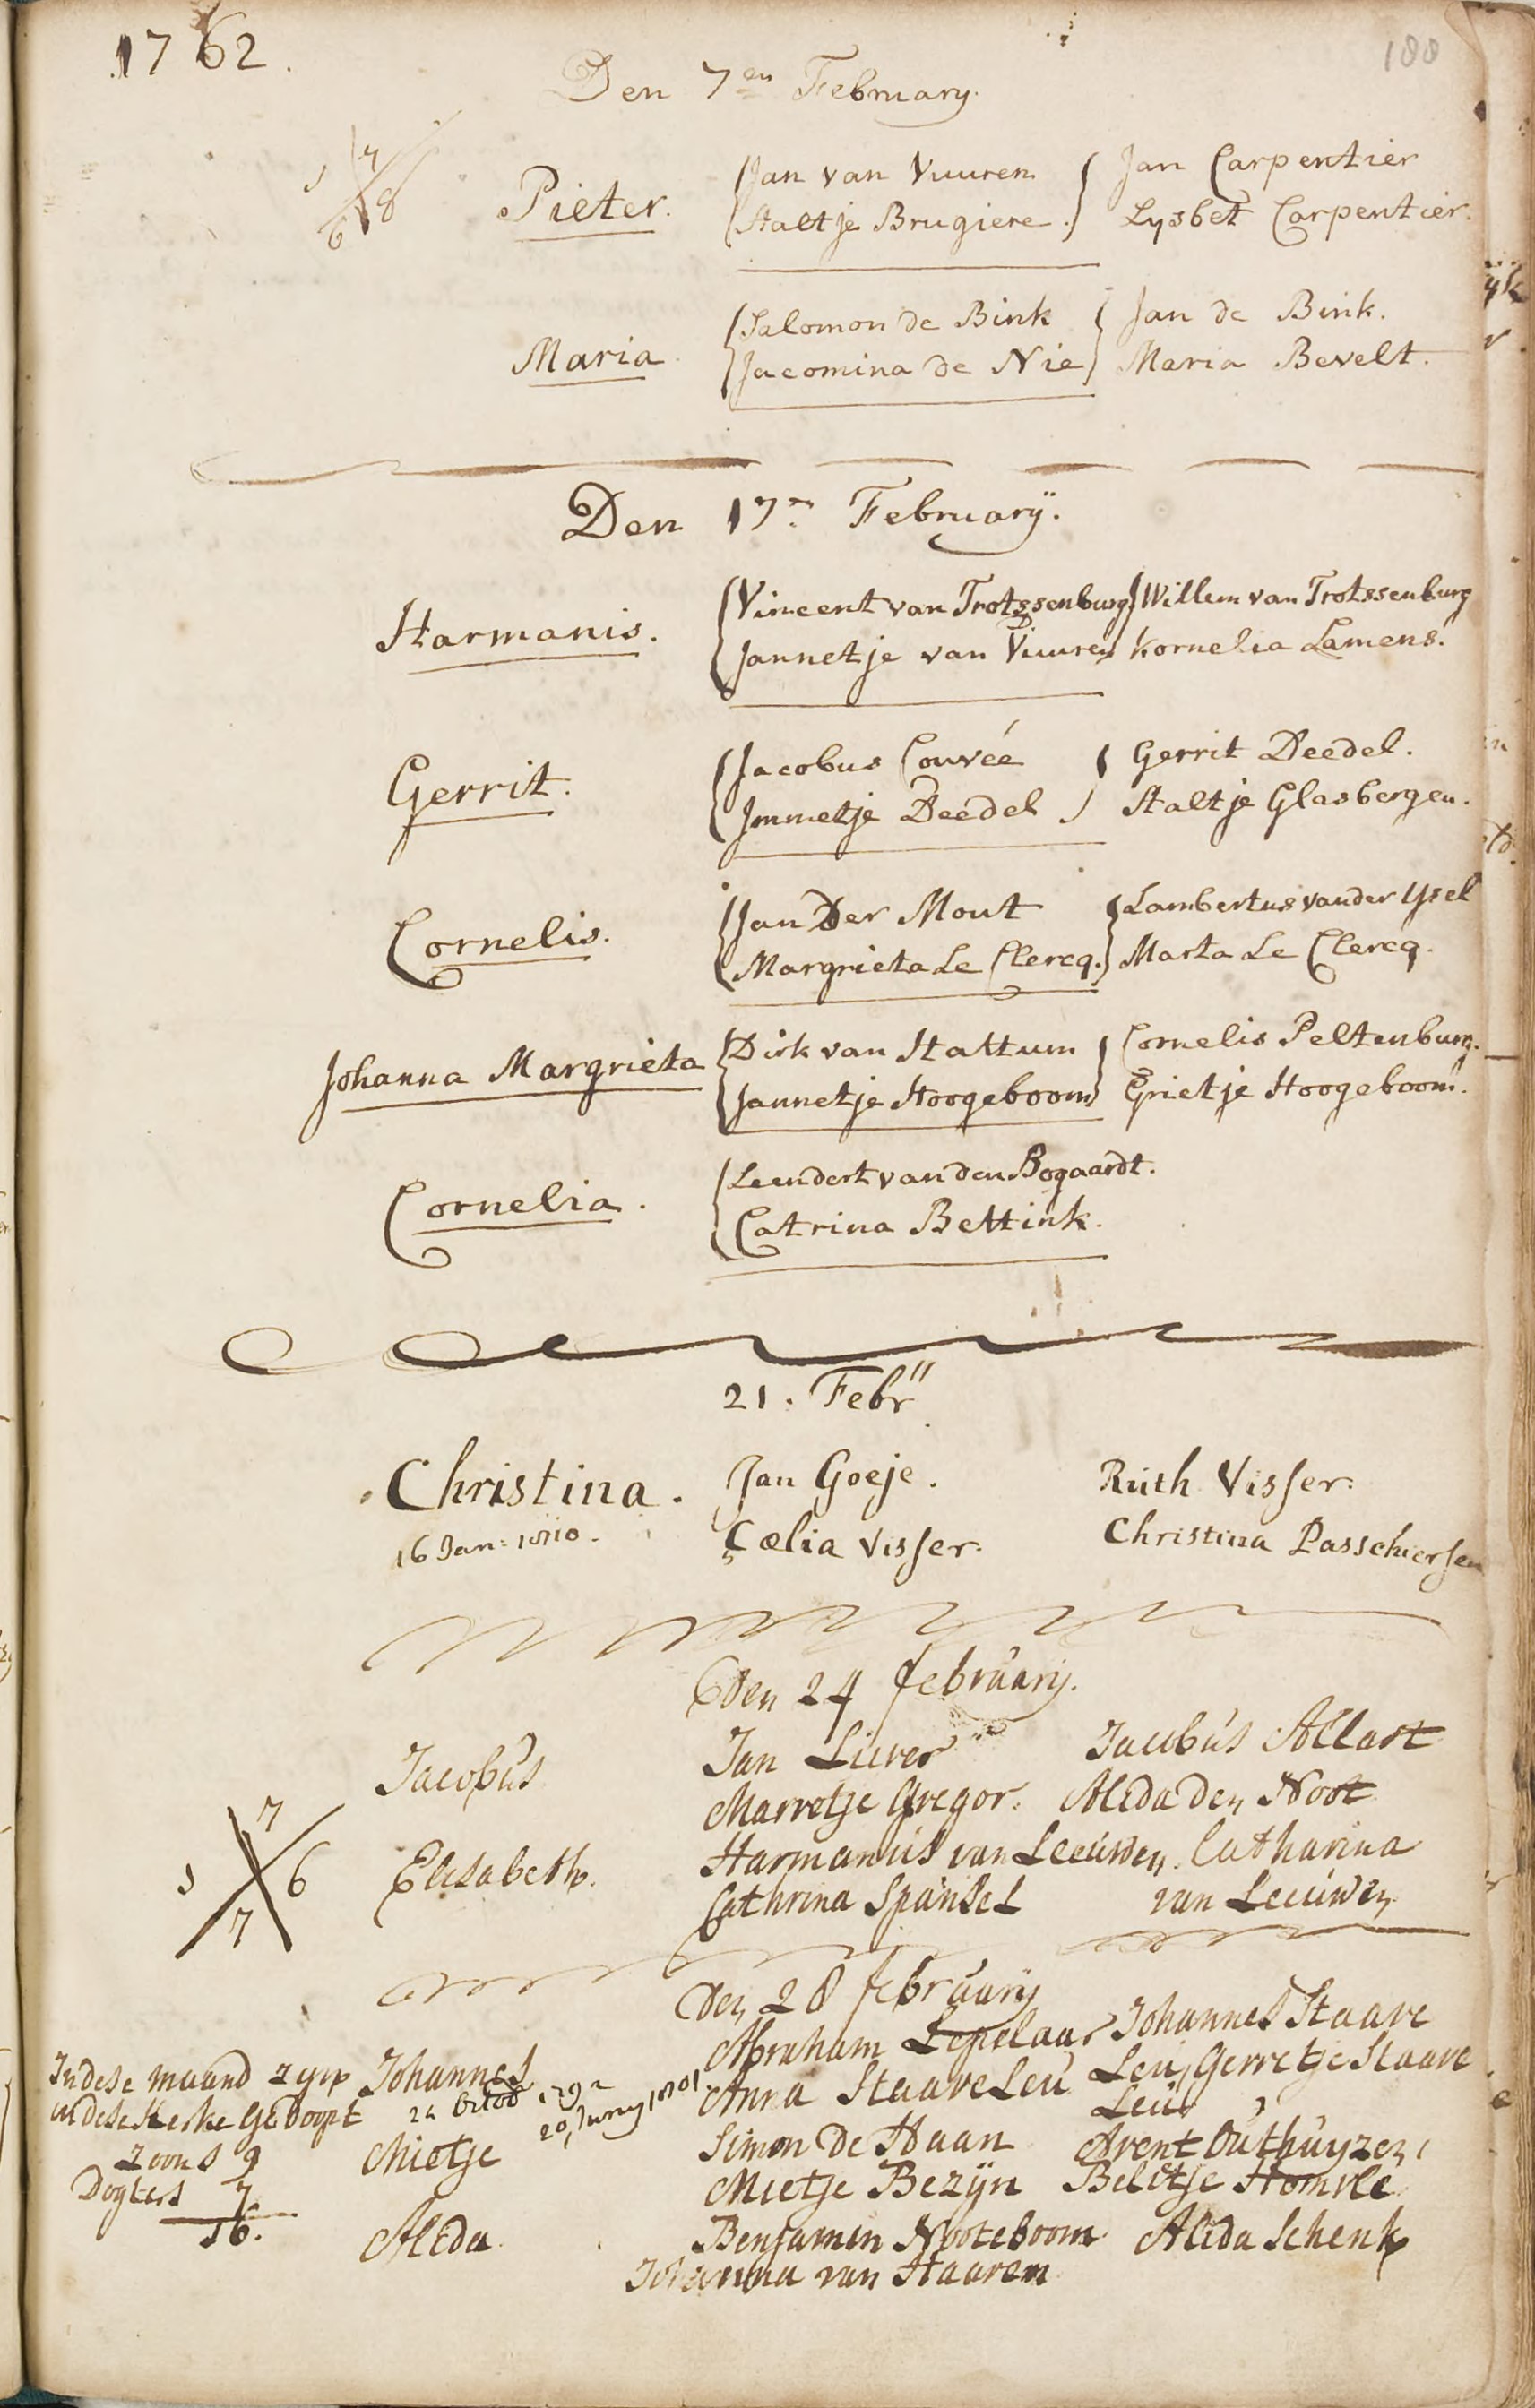 1762.
188
Den 7en February.
Pieter. Jan van Vuuren Jan Carpentier
Haeltje Brugiere. Lysbet Carpentier.
Maria. Salomon de Bink Jan de Bink.
Jacomina de Nie Maria Bevelt.
Den 17n February.
Harmanis. Vincent van Trotssenburg Willem van Trotssenburg
Jannetje van Vuuren Kornelia Lamens.
Gerrit. Jacobus Couvéé Gerrit Deedel.
Immetje Deedel Aaltje Glasbergen.
Cornelis. Jan Der Mout Lambertus vander Ysel
Margrieta Le Clercq. Marta Le Clercq.
Johanna Margrieta Dirk van Hattum Cornelis Peltenburg.
Jannetje Hoogeboom Grietje Hoogeboom.
Cornelia. Leendert van den Bogaardt.
Catrina Bettink.
21. Febr
Christina. Jan Goeje. Ruth Visser.
16 Jan: 1810. Cælia Visser. Christina Passchiersen
Den 24 februarij.
Jacobus Jan Liever Jacobus Allart
Marretje Gregor. Alida den Noot
7
6 Elisabeth. Harmanus van Leeuwen. Catharina
Cathrina Spansel van Leeuwen
7
Den 28 februarij
Johannes Abraham Lepelaar Johannes Staave
In dese maand zijn Anna StaaveLeu Leu, Gerretje Staave
in dese Kerke Gedoopt 20 Juny 1801 Leu
Zoons 9 Mietje Simon De Haan Arent Outhuyzen
Dogters 7 Mietje Bezijn Beletje
16. Alida Benjamin Nooteboom Alida Schenk
Johanna van Haarem